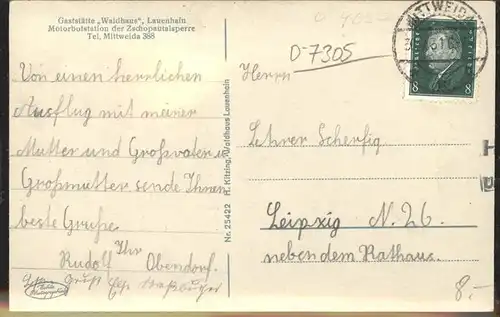 Gaststätte „Waldhaus", Lauenhain
Motorbotstation der Zschopautalsperre
Tel. Mittweida 388
Von einen herrlichen
Ausflug mit meiner
Mutter und Großvater u.
Großmutter sende Ihnen
beste Grüße.
Ihr
Rudolf Obendorf.
Gruß
Nr. 25422 H. Kitzing, Waldhaus Lauenhain
O-7305
MITTWEIDA
8 8
Herrn
Lehrer Scherfig
Leipzig N. 26.
neben dem Rathaus.
8.-